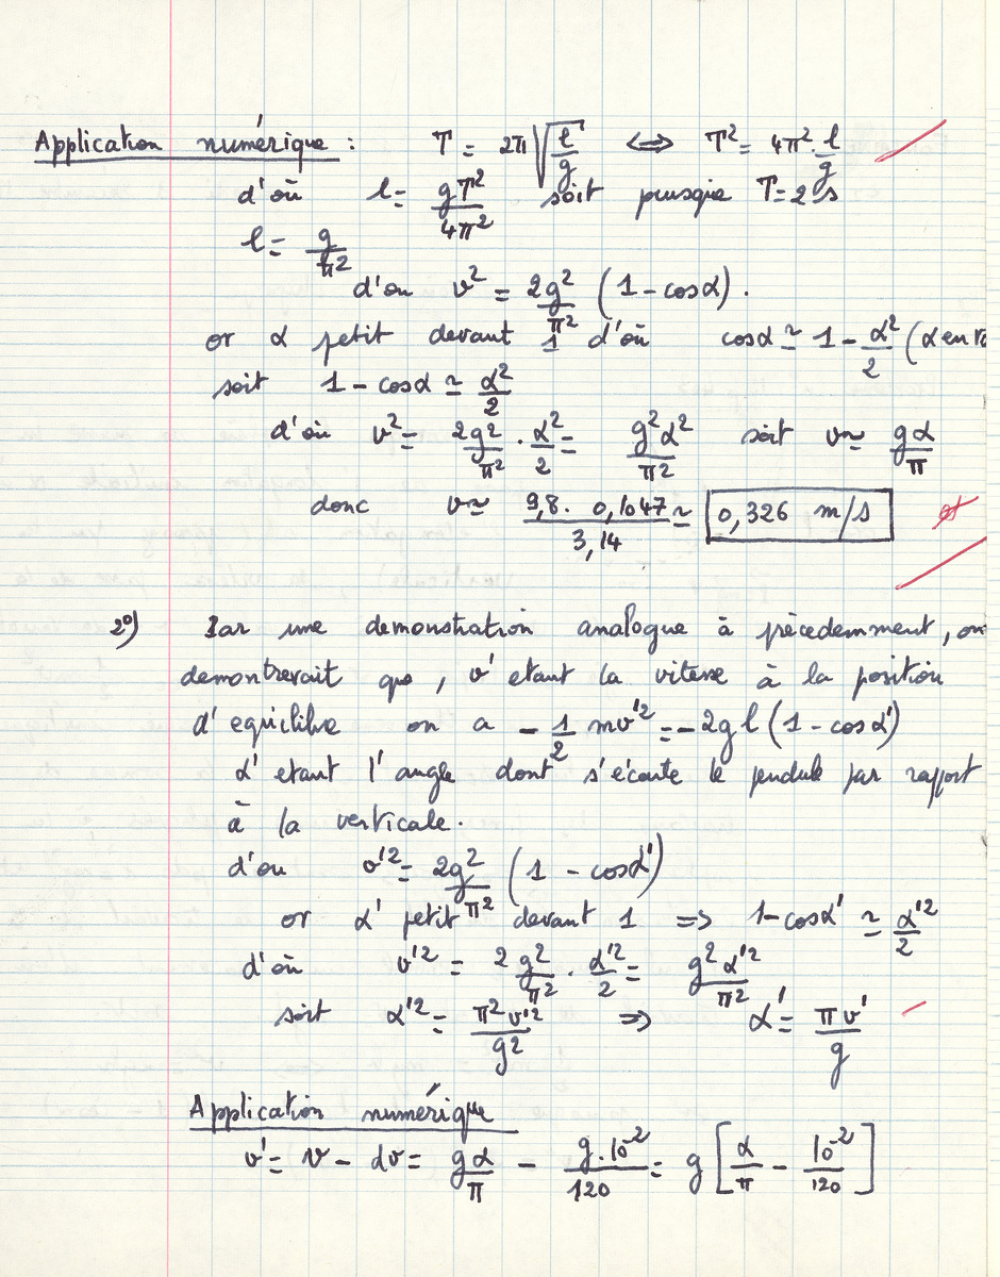 Application numérique : T = 2π√(l/g) ⟺ T² = 4π² · l/g
d'où l = gT²/4π² soit puisque T = 2 s
l = g/π²
d'ou v² = 2g²/π² (1 - cosα).
or α petit devant 1 d'où cosα ≃ 1 - α²/2 (α en
soit 1 - cosα ≃ α²/2
d'où v² = 2g²/π² · α²/2 = g²α²/π² soit v ≃ gα/π
donc v ≃ 9,8 . 0,1047/3,14 ≃ 0,326 m/s
2°) Par une demonstration analogue à précedemment, on
demontrerait que, v' etant la vitesse à la position
d'equilibre on a - 1/2 mv'² = - 2gl (1 - cosα')
α' etant l'angle dont s'écarte le pendule par rapport
à la verticale.
d'ou v'² = 2g²/π² (1 - cosα')
or α' petit devant 1 ⇒ 1 - cosα' ≃ α'²/2
d'où v'² = 2g²/π² · α'²/2 = g²α'²/π²
soit α'² = π²v'²/g² ⇒ α' = πv'/g
Application numérique
v' = v - dv = gα/π - g.10⁻²/120 = g [α/π - 10⁻²/120]